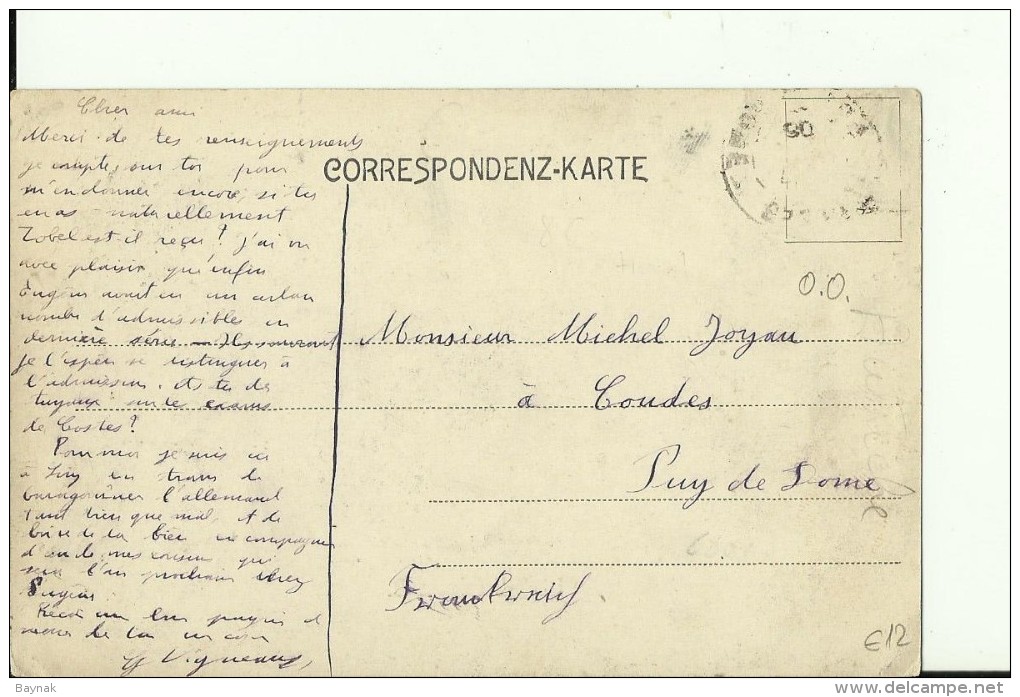 Cher ami
Merci de tes renseignements
je compte sur toi pour
m'en donner encore, si tu
en as naturellement
Zobel est-il reçu? j'ai vu
avec plaisir qu'enfin
Eugène avait eu un certain
nombre d'admissibles en
dernière série — Ils sauront
je l'espère se distinguer à
l'admission. As tu des
tuyaux sur les exams
de Costes?
Pour moi je suis ici
à en train de
baragouiner l'allemand
tant bien que mal, et de
boire de la bière en compagnie
d'un de mes cousin qui
sera l'an prochain chez
Eugène.
Reçois une poignée de
main de ton
Vigneaux
CORRESPONDENZ-KARTE
Monsieur Michel Joyau
à Coudes
Puy de Dome
Frankreich
O.O.
€12
Baynak
www.delcampe.net